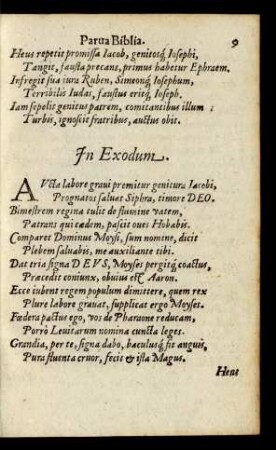 Parua Biblia. 9
Heus repetit promissa Iacob, genitosq́ Iosephi,
Tangit, fausta precans, primus habetur Ephraem.
Infregit sua iura Ruben, Simeonq́ Iosephum,
Terribilis Iudas, faustus eritq́, Ioseph.
Iam sepelit genitus patrem, comitantibus illum
Turbis, ignoscit fratribus, auctus obit.
In Exodum.
AVcta labore graui premitur genitura Iacobi,
Prognatos saluat Siphra, timore DEO.
Bimestrem regina tulit de flumine vatem,
Patrans qui cædem, pascit oues Hobabis.
Comparet Dominus Moysi, sum nomine, dicit
Plebem saluabis, me auxiliante tibi.
Dat tria signa DEVS, Moyses pergitq́ coactus,
Præcedit coniunx, obuius est Aaron.
Ecce iubent regem populum dimittere, quem rex
Plure labore grauat, supplicat ergo Moyses.
Fœdera pactus ego, vos de Pharaone reducam,
Porrò Leuitarum nomina cuncta leges.
Grandia, per te, signa dabo, baculusq́ fit anguis,
Pura fluenta cruor, fecit & ista Magus.
Heus